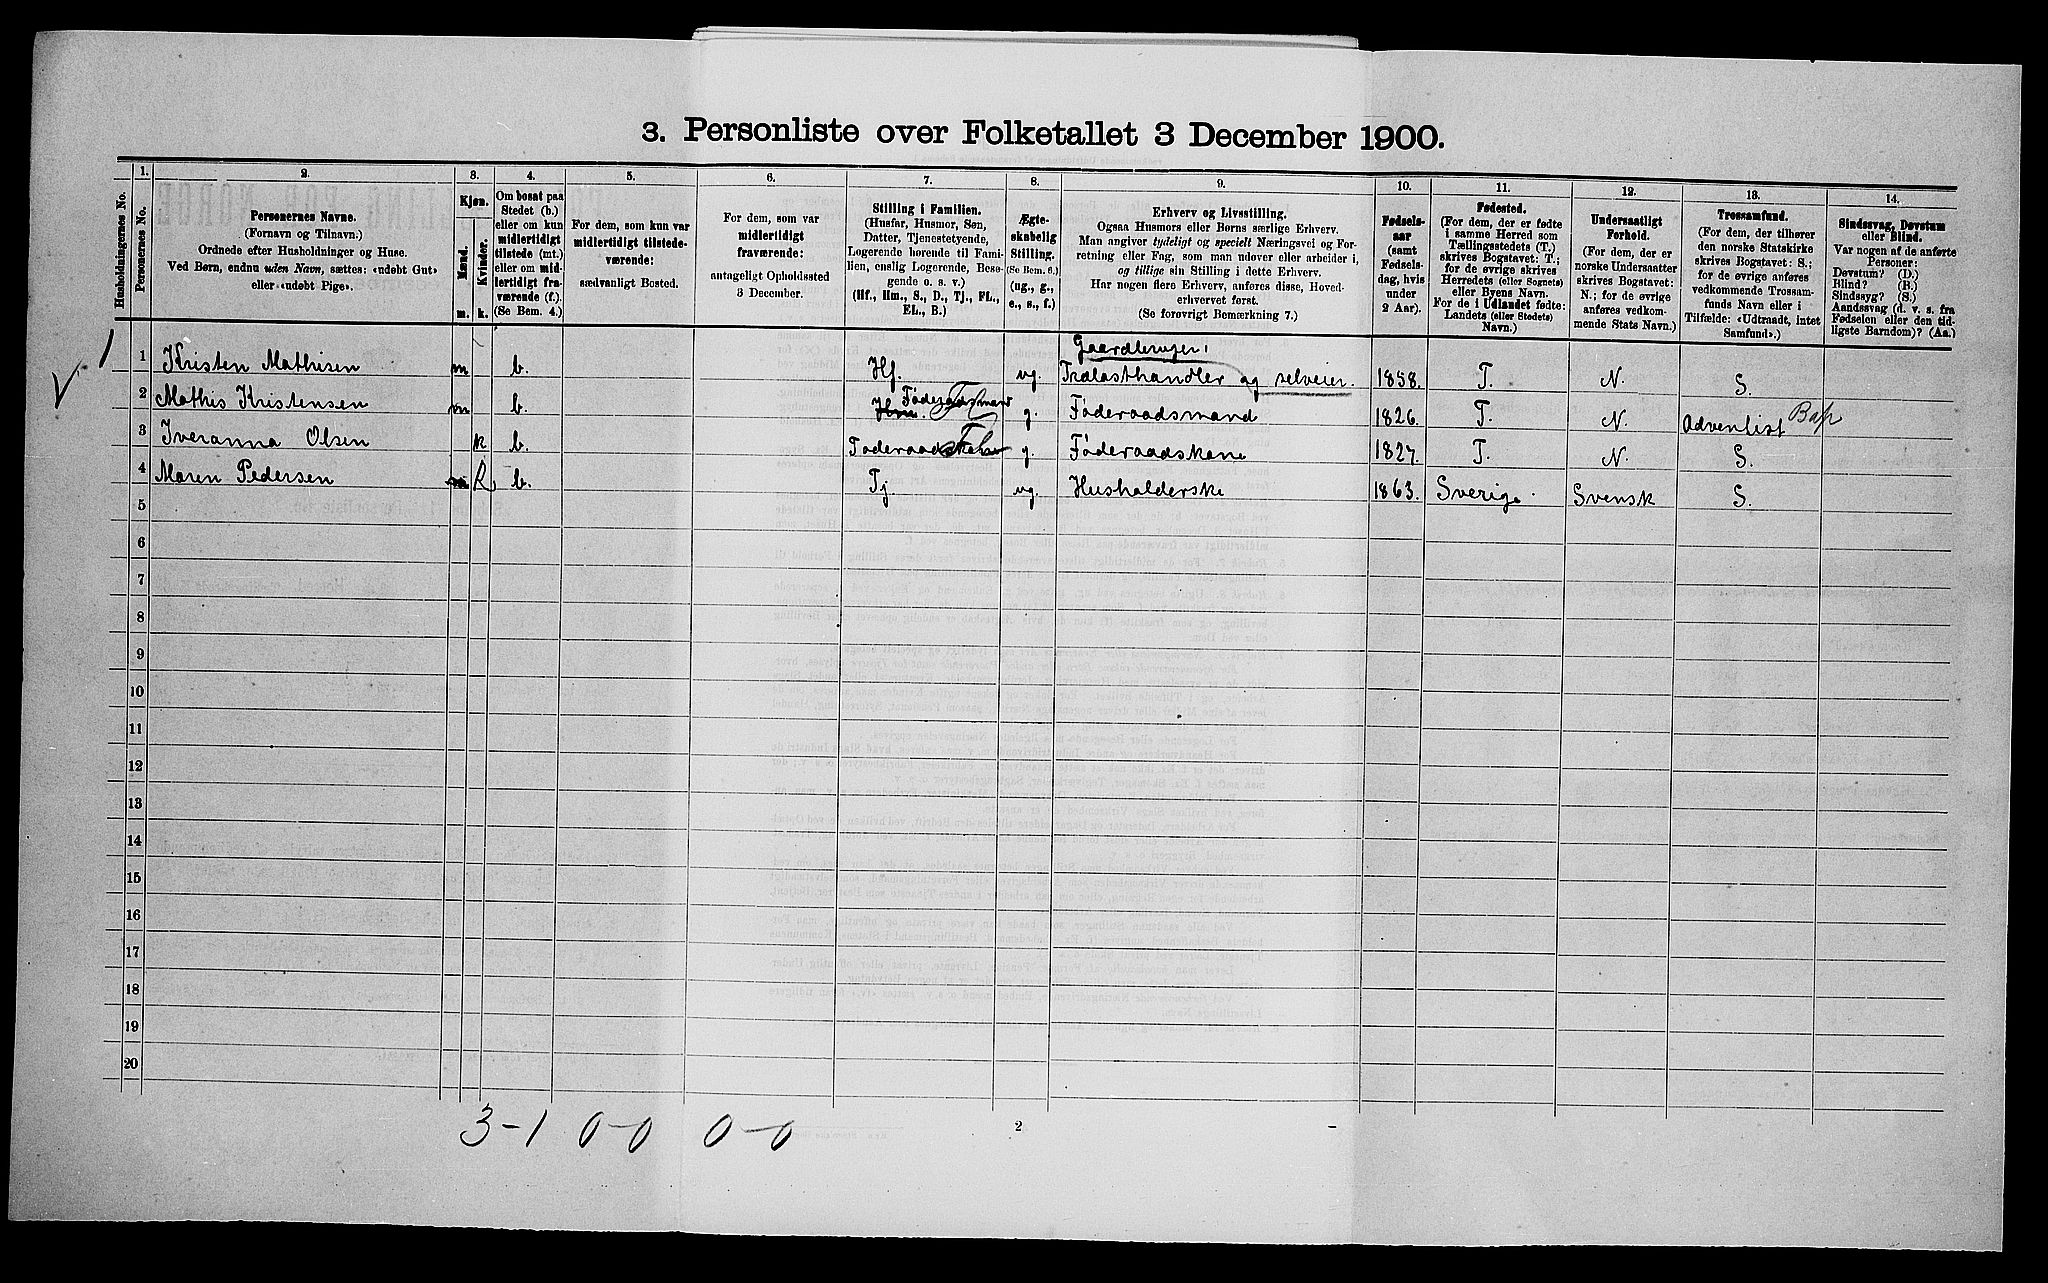 3. Personliste over Folketallet 3 December 1900.
Husholdningernes No.
1.
Personernes No.
2.
Personernes Navne.
(Fornavn og Tilnavn.)
Ordnede efter Husholdninger og Huse.
Ved Børn, endnu uden Navn, sættes: «udøbt Gut»
eller «udøbt Pige».
3.
Kjøn.
Mænd.
Kvinder.
m.
k.
4.
Om bosat paa
Stedet (b.)
eller om kun
midlertidigt
tilstede (mt.)
eller om mid-
lertidigt fra-
værende (f.).
(Se Bem. 4.)
5.
For dem, som kun var
midlertidigt tilstede-
værende:
sædvanligt Bosted.
6.
For dem, som var
midlertidigt
fraværende:
antageligt Opholdssted
3 December.
7.
Stilling i Familien.
(Husfar, Husmor, Søn,
Datter, Tjenestetyende,
Logerende hørende til Fami-
lien, enslig Logerende, Besø-
gende o. s. v.)
(Hf., Hm., S., D., Tj., FL.,
EL., B.)
8.
Ægte-
skabelig
Stilling.
(Se Bem. 6.)
(ug., g.,
e., s., f.)
9.
Erhverv og Livsstilling.
Ogsaa Husmors eller Børns særlige Erhverv.
Man angiver tydeligt og specielt Næringsvei og For-
retning eller Fag, som man udøver eller arbeider i,
og tillige sin Stilling i dette Erhverv.
Har nogen flere Erhverv, anføres disse, Hoved-
erhvervet først.
(Se forøvrigt Bemærkning 7.)
10.
Fødsels-
aar
(samt
Fødsels-
dag, hvis
under
2 Aar).
11.
Fødested.
(For dem, der er fødte
i samme Herred som
Tællingsstedets (T.)
skrives Bogstavet: T.;
for de øvrige skrives
Herredets (eller Sognets)
eller Byens Navn.
For de i Udlandet fødte:
Landets (eller Stedets)
Navn.)
12.
Undersaatligt
Forhold.
(For dem, der er
norske Undersaatter
skrives Bogstavet:
N.; for de øvrige
anføres vedkom-
mende Stats Navn.)
13.
Trossamfund.
(For dem, der tilhører
den norske Statskirke
skrives Bogstavet: S.;
for de øvrige anføres
vedkommende Trossam-
funds Navn eller i
Tilfælde: «Udtraadt, intet
Samfund».)
14.
Sindssvag, Døvstum
eller Blind.
Var nogen af de anførte
Personer:
Døvstum? (D.)
Blind? (B.)
Sindssyg? (S.)
Aandssvag (d. v. s. fra
Fødselen eller den tid-
ligste Barndom)? (Aa.)
Gaardbruger,
1 1 Kristen Mathisen m b. Hf. ug. Trælasthandler og selveier. 1858. T. N. S.
Føderaadsmand
2 Mathis Kristensen m b. Hm. FL g. Føderaadsmand 1826. T. N. Advenlist Bapt
3 Iveranna Olsen k b. g. Føderaadskone 1827. T. N. S.
4 Maren Pedersen m k b. Tj ug. Husholderske 1863. Sverige. Svensk S.
5
6
7
8
9
10
11
12
13
14
15
16
17
18
19
20
3-1 0-0 0-0
2